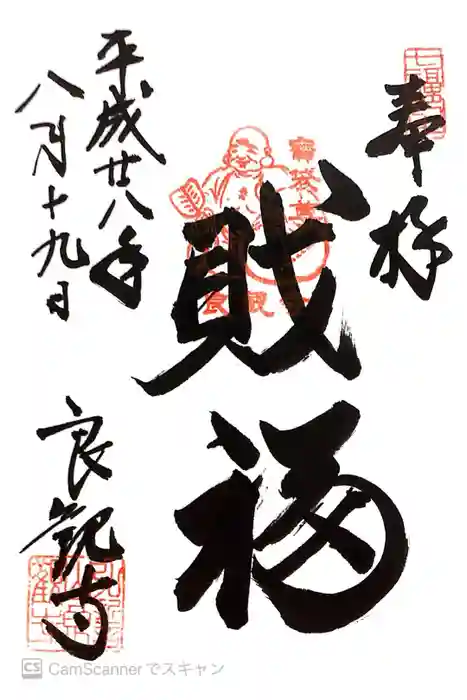 奉拝
財福
平成廿八年
八月十九日
良観寺
CS CamScannerでスキャン